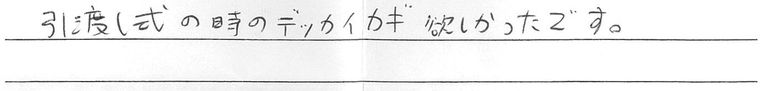 引渡し式の時のデッカイカギ欲しかったです。